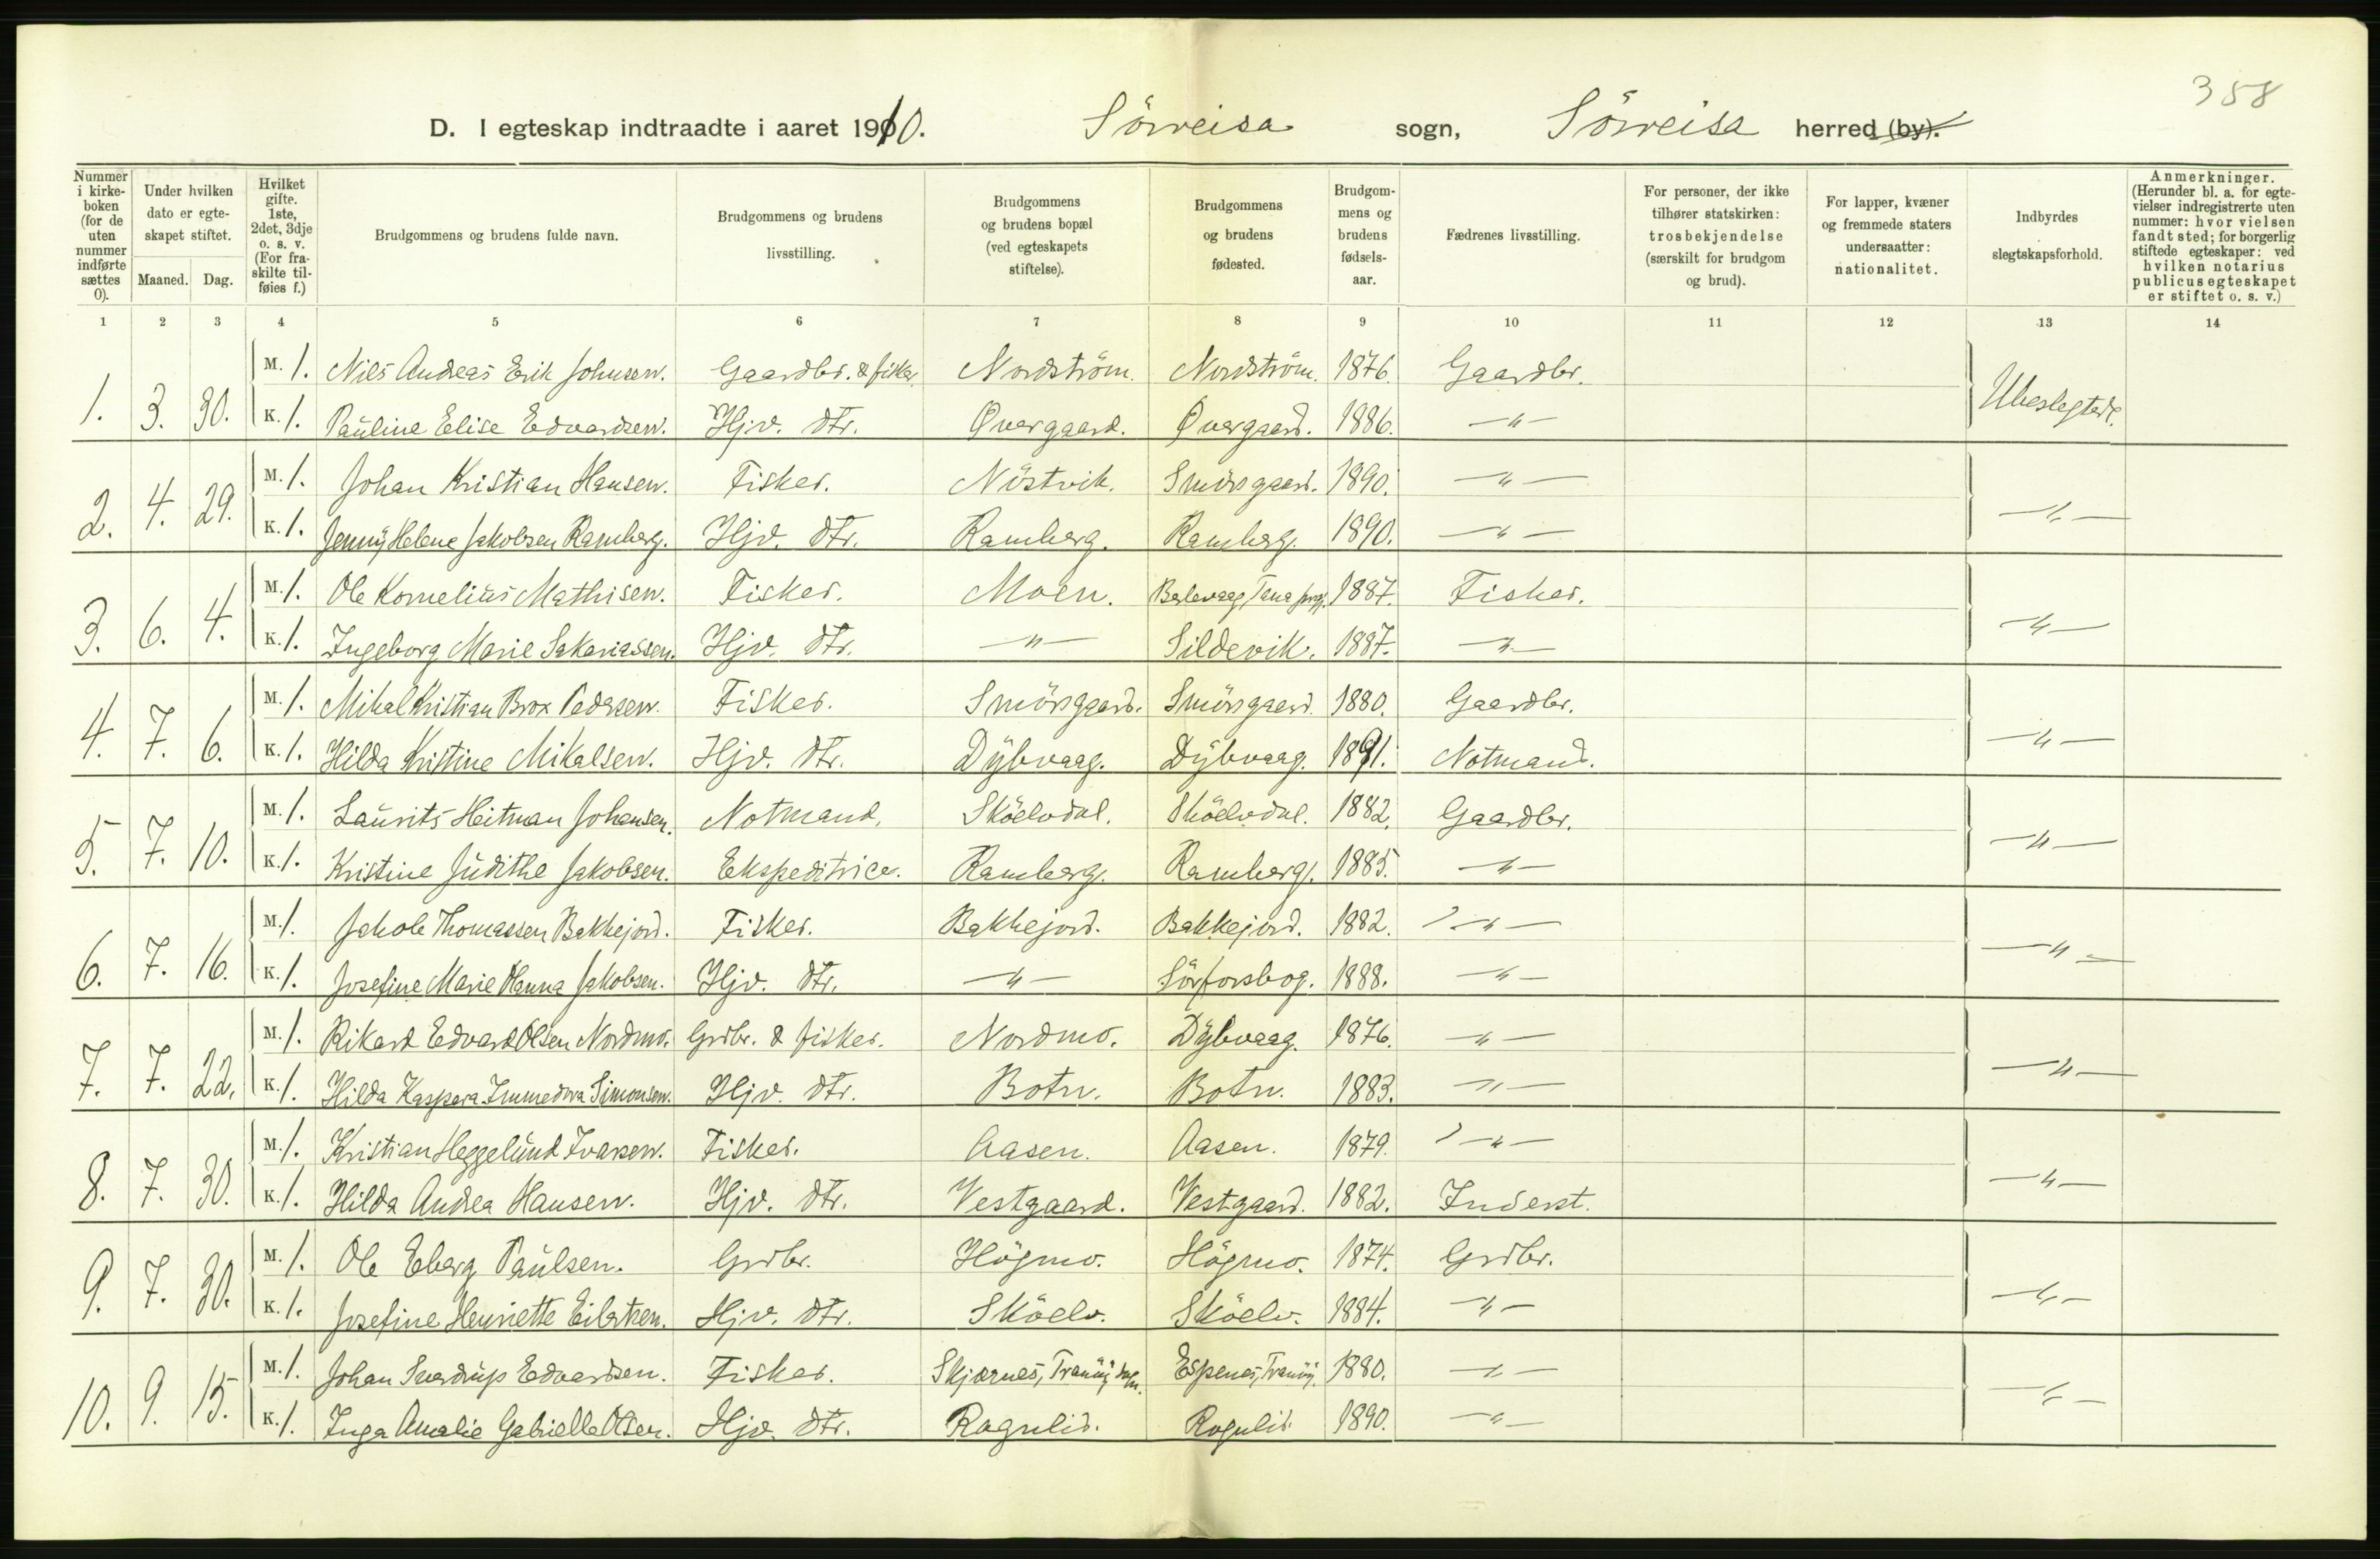 358
D. I egteskap indtraadte i aaret 1910. Sörreisa sogn, Sörreisa herred (by).
Nummer i kirkeboken (for de uten nummer indførte sættes 0). | Under hvilken dato er egteskapet stiftet. Maaned. Dag. | Hvilket gifte. 1ste, 2det, 3dje o. s. v. (For fraskilte tilføies f.) | Brudgommens og brudens fulde navn. | Brudgommens og brudens livsstilling. | Brudgommens og brudens bopæl (ved egteskapets stiftelse). | Brudgommens og brudens fødested. | Brudgommens og brudens fødselsaar. | Fædrenes livsstilling. | For personer, der ikke tilhører statskirken: trosbekjendelse (særskilt for brudgom og brud). | For lapper, kvæner og fremmede staters undersaatter: nationalitet. | Indbyrdes slegtskapsforhold. | Anmerkninger. (Herunder bl. a. for egtevielser indregistrerte uten nummer: hvor vielsen fandt sted; for borgerlig stiftede egteskaper: ved hvilken notarius publicus egteskapet er stiftet o. s. v.)
1 2 3 4 5 6 7 8 9 10 11 12 13 14
1. 3. 30. M. 1. Nils Andreas Erik Johnsen. Gaardbr. & fisker. Nordström. Nordström. 1876. Gaardbr. Ubeslegtede.
K. 1. Pauline Elise Edvardsen. Hjv. dtr. Øvergaard. Øvergaard. 1886. —"—
2. 4. 29. M. 1. Johan Kristian Hansen. Fisker. Nöstvik. Smörsgaard. 1890. —"— —"—
K. 1. Jenny Helene Jakobsen Ramberg. Hjv. dtr. Ramberg. Ramberg. 1890. —"—
3. 6. 4. M. 1. Ole Kornelius Mathisen. Fisker. Moen. Berlevaag, Tana prgj. 1887. Fisker. —"—
K. 1. Ingeborg Marie Sakariassen. Hjv. dtr. —"— Sildevik. 1887. —"—
4. 7. 6. M. 1. Mikal Kristian Brox Pedersen. Fisker. Smörsgaard. Smörsgaard. 1880. Gaardbr. —"—
K. 1. Hilda Kristine Mikalsen. Hjv. dtr. Dybvaag. Dybvaag. 1891. Notmand.
5. 7. 10. M. 1. Laurits Heitman Johansen. Notmand. Sköelvdal. Sköelvdal. 1882. Gaardbr. —"—
K. 1. Kristine Judithe Jakobsen. Ekspeditrice. Ramberg. Ramberg. 1885. —"—
6. 7. 16. M. 1. Jakob Thomassen Bakkejord. Fisker. Bakkejord. Bakkejord. 1882. —"— —"—
K. 1. Josefine Marie Hanna Jakobsen. Hjv. dtr. —"— Sörforsbog. 1888. —"—
7. 7. 22. M. 1. Rikard Edvard Olsen Nordmo. Grdbr. & fisker. Nordmo. Dybvaag. 1876. —"— —"—
K. 1. Hilda Kaspera Immedora Simonsen. Hjv. dtr. Botn. Botn. 1883. —"—
8. 7. 30. M. 1. Kristian Heggelund Ivarsen. Fisker. Aasen. Aasen. 1879. —"— —"—
K. 1. Hilda Andrea Hansen. Hjv. dtr. Vestgaard. Vestgaard. 1882. Inderst.
9. 7. 30. M. 1. Ole Eberg Paulsen. Grdbr. Högmo. Högmo. 1874. Grdbr. —"—
K. 1. Josefine Henriette Eilertsen. Hjv. dtr. Sköelv. Sköelv. 1884. —"—
10. 9. 15. M. 1. Johan Sverdrup Edvardsen. Fisker. Skjærnes, Tranöy sogn. Espenes, Tranöy. 1880. —"— —"—
K. 1. Inga Amalie Gabrielle Olsen. Hjv. dtr. Rognlid. Rognlid. 1890. —"—